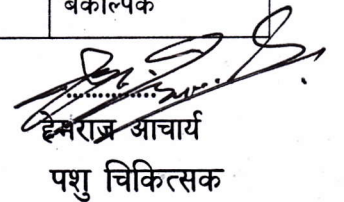 बैकल्पिक
हेमराज आचार्य
पशु चिकित्सक